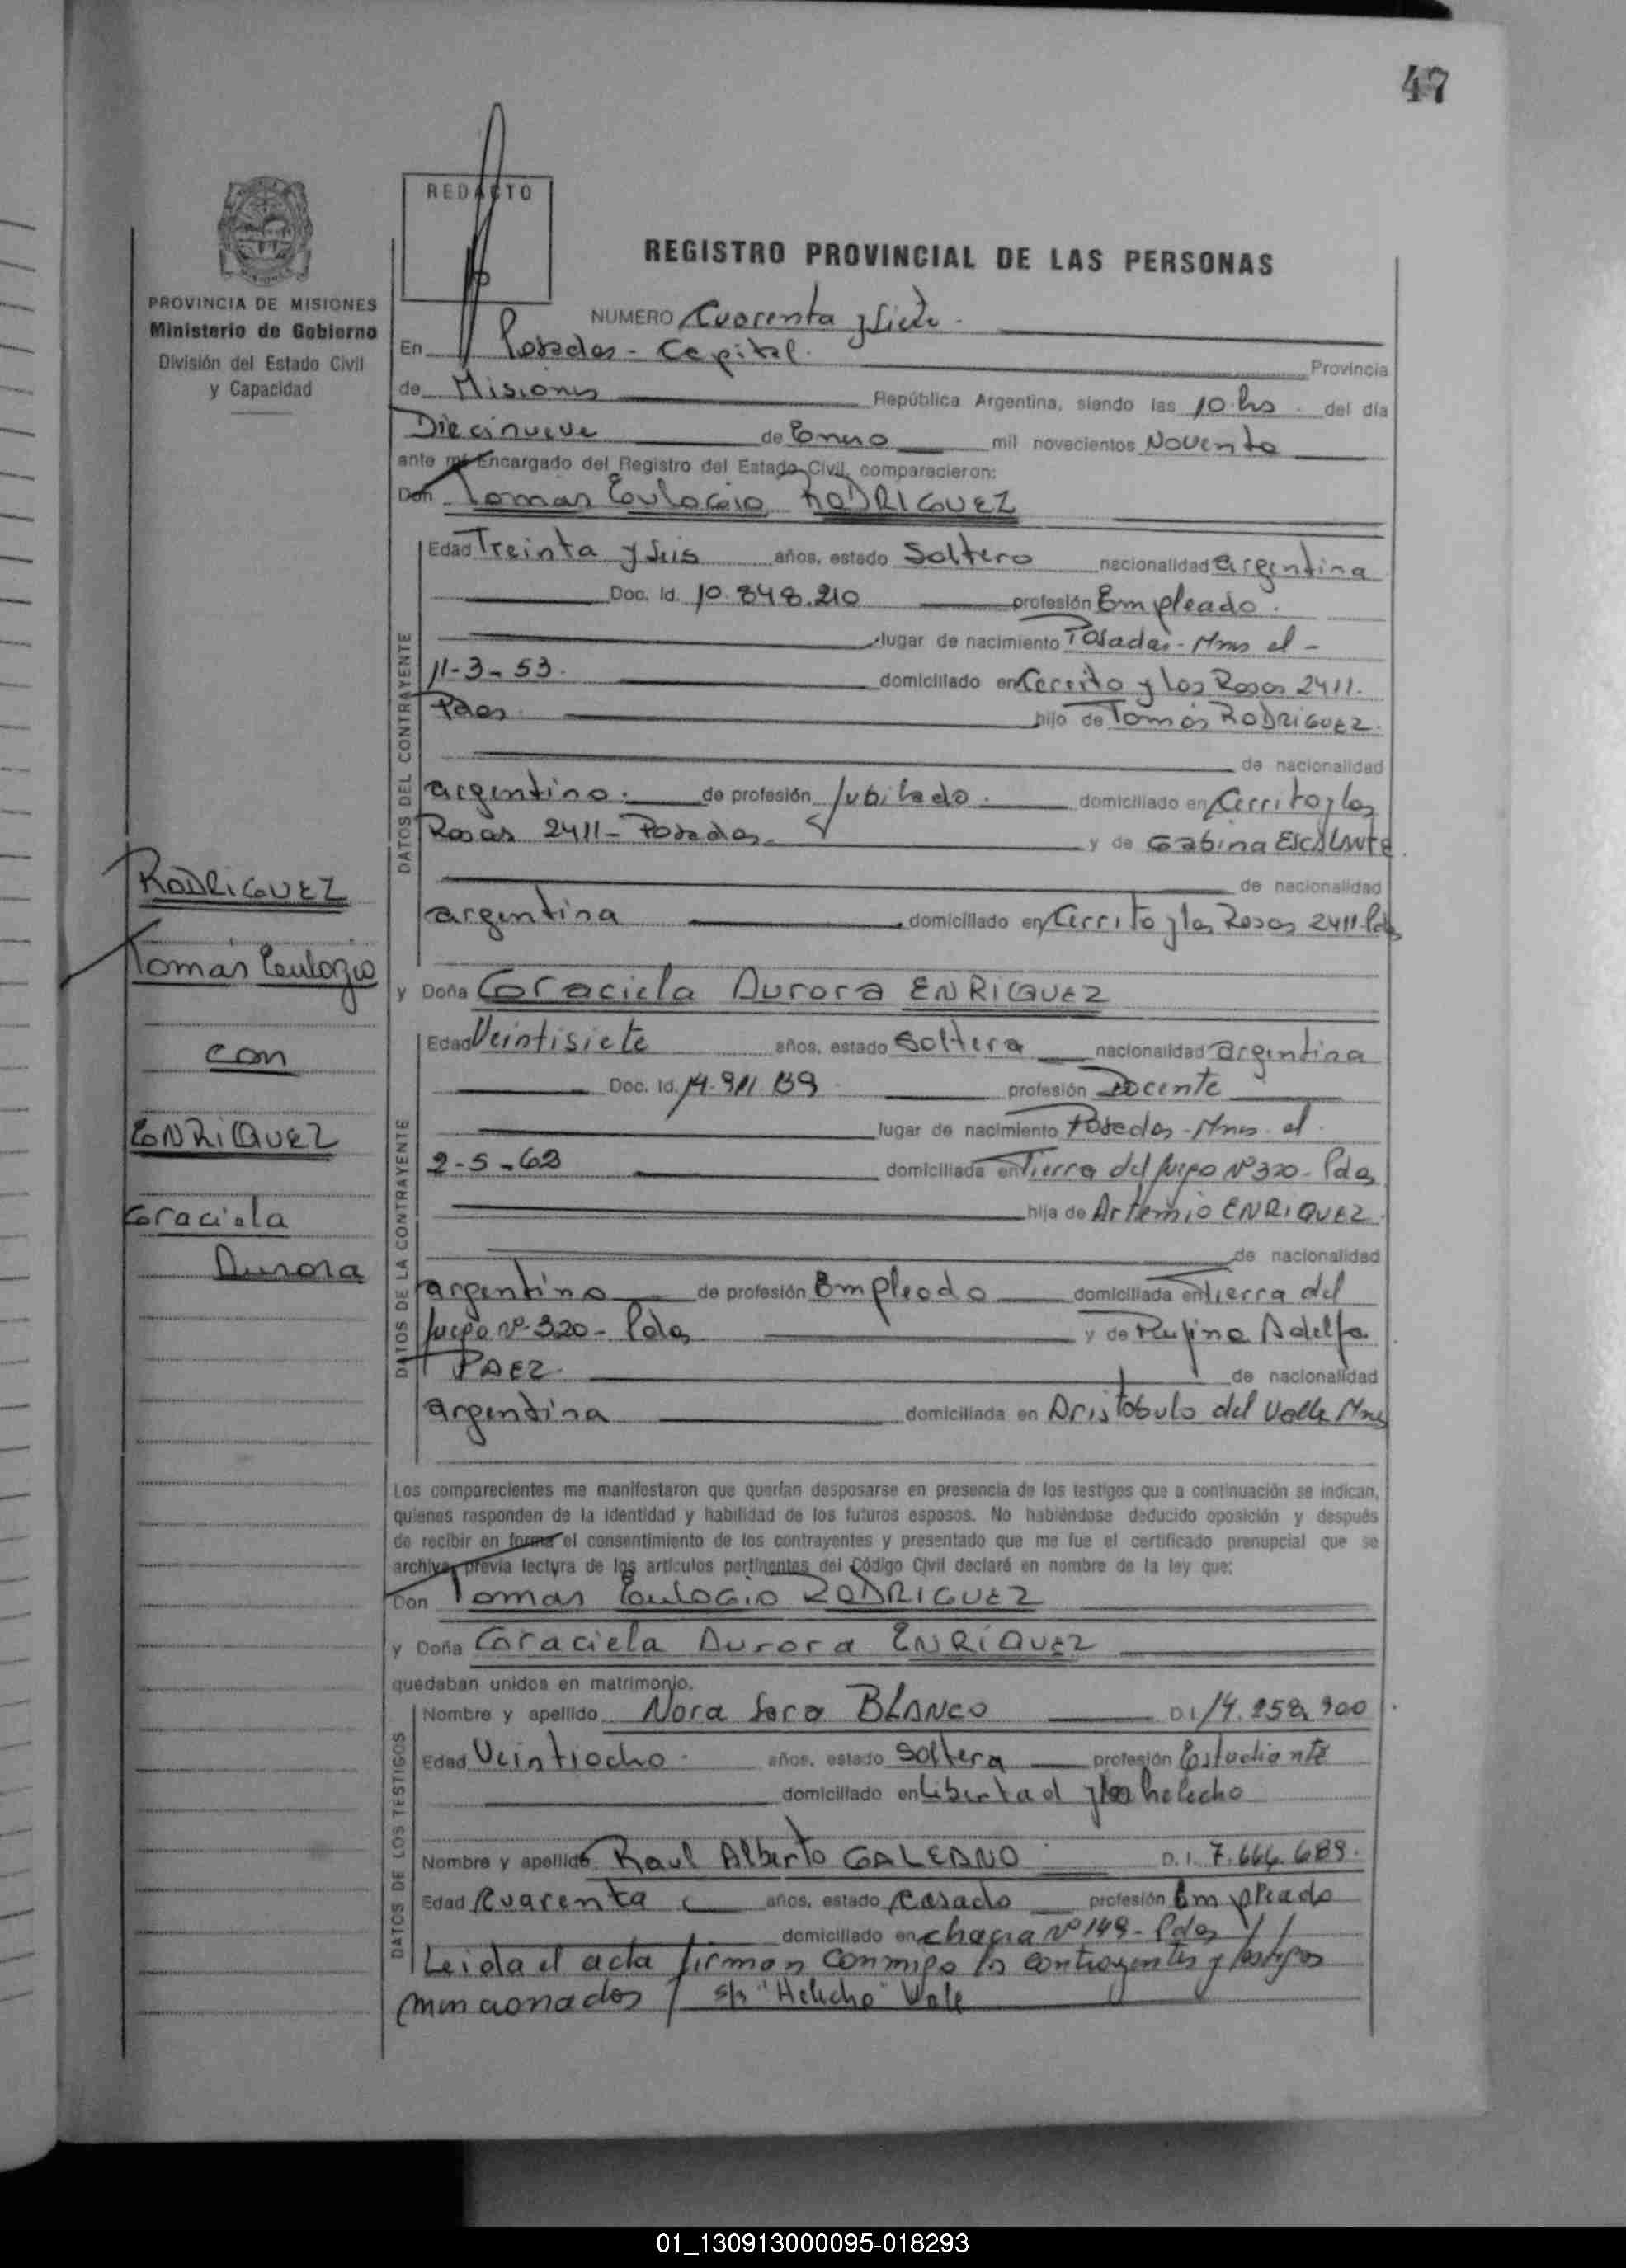 47
REDACTO
REGISTRO PROVINCIAL DE LAS PERSONAS
PROVINCIA DE MISIONES
Ministerio de Gobierno
División del Estado Civil
y Capacidad
NUMERO Cuarenta y Siete.
En Posadas - Capital. Provincia
de Misiones República Argentina, siendo las 10 hs. del día
Diecinueve de Enero mil novecientos Noventa
ante mí Encargado del Registro del Estado Civil, comparecieron:
Don Tomas Eulogio RODRIGUEZ
DATOS DEL CONTRAYENTE
Edad Treinta y Seis años, estado Soltero nacionalidad argentina
Doc. Id. 10.848.210 profesión Empleado.
lugar de nacimiento Posadas - Mnes el -
11-3-53. domiciliado en Cerrito y Las Rosas 2411.
Pdas. hijo de Tomás RODRIGUEZ.
de nacionalidad
argentino. de profesión Jubilado. domiciliado en Cerrito y las
Rosas 2411 - Posadas. y de Gabina ESCALANTE.
de nacionalidad
argentina domiciliado en Cerrito y las Rosas 2411-Pdas
y Doña Graciela Aurora ENRIQUEZ
DATOS DE LA CONTRAYENTE
Edad Veintisiete años, estado Soltera nacionalidad argentina
Doc. Id. profesión Docente
lugar de nacimiento Posadas - Mnes. el.
2-5-62 domiciliada en Tierra del fuego Nº 320 - Pdas
hija de Artemio ENRIQUEZ.
de nacionalidad
argentino de profesión Empleado domiciliada en Tierra del
fuego nº 320 - Pdas y de Rufina Adelfa
PAEZ. de nacionalidad
argentina domiciliada en Aristóbulo del Valle Mnes
RODRIGUEZ
Tomás Eulogio
con
ENRIQUEZ
Graciela
Aurora
Los comparecientes me manifestaron que querían desposarse en presencia de los testigos que a continuación se indican,
quienes responden de la identidad y habilidad de los futuros esposos. No habiéndose deducido oposición y después
de recibir en forma el consentimiento de los contrayentes y presentado que me fue el certificado prenupcial que se
archiva, previa lectura de los artículos pertinentes del Código Civil declaré en nombre de la ley que:
Don Tomas Eulogio RODRIGUEZ
y Doña Graciela Aurora ENRÍQUEZ
quedaban unidos en matrimonio.
DATOS DE LOS TESTIGOS
Nombre y apellido Nora Sara BLANCO D.I. 14.258.900
Edad Veintiocho. años, estado Soltera profesión Estudiante
domiciliado en Libertad y helecho
Nombre y apellido Raul Alberto GALEANO D.I. 7.664.689.
Edad Cuarenta años, estado Casado profesión Empleado
domiciliado en chacra Nº 149 - Pdas //
Leida el acta firman conmigo los contrayentes y testigos
mencionados / s/r "Helecho" Vale
01_130913000095-018293